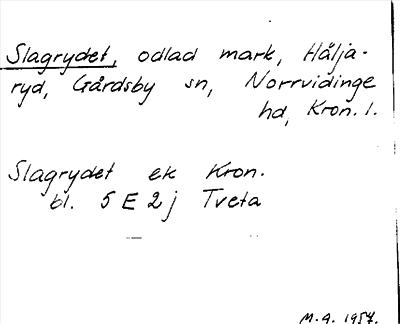 Slagrydet, odlad mark, Hålja-
ryd, Gårdsby sn, Norrvidinge
hd, Kron. l.
Slagrydet ek Kron.
bl. 5 E 2 j Tveta
M. A. 1957.